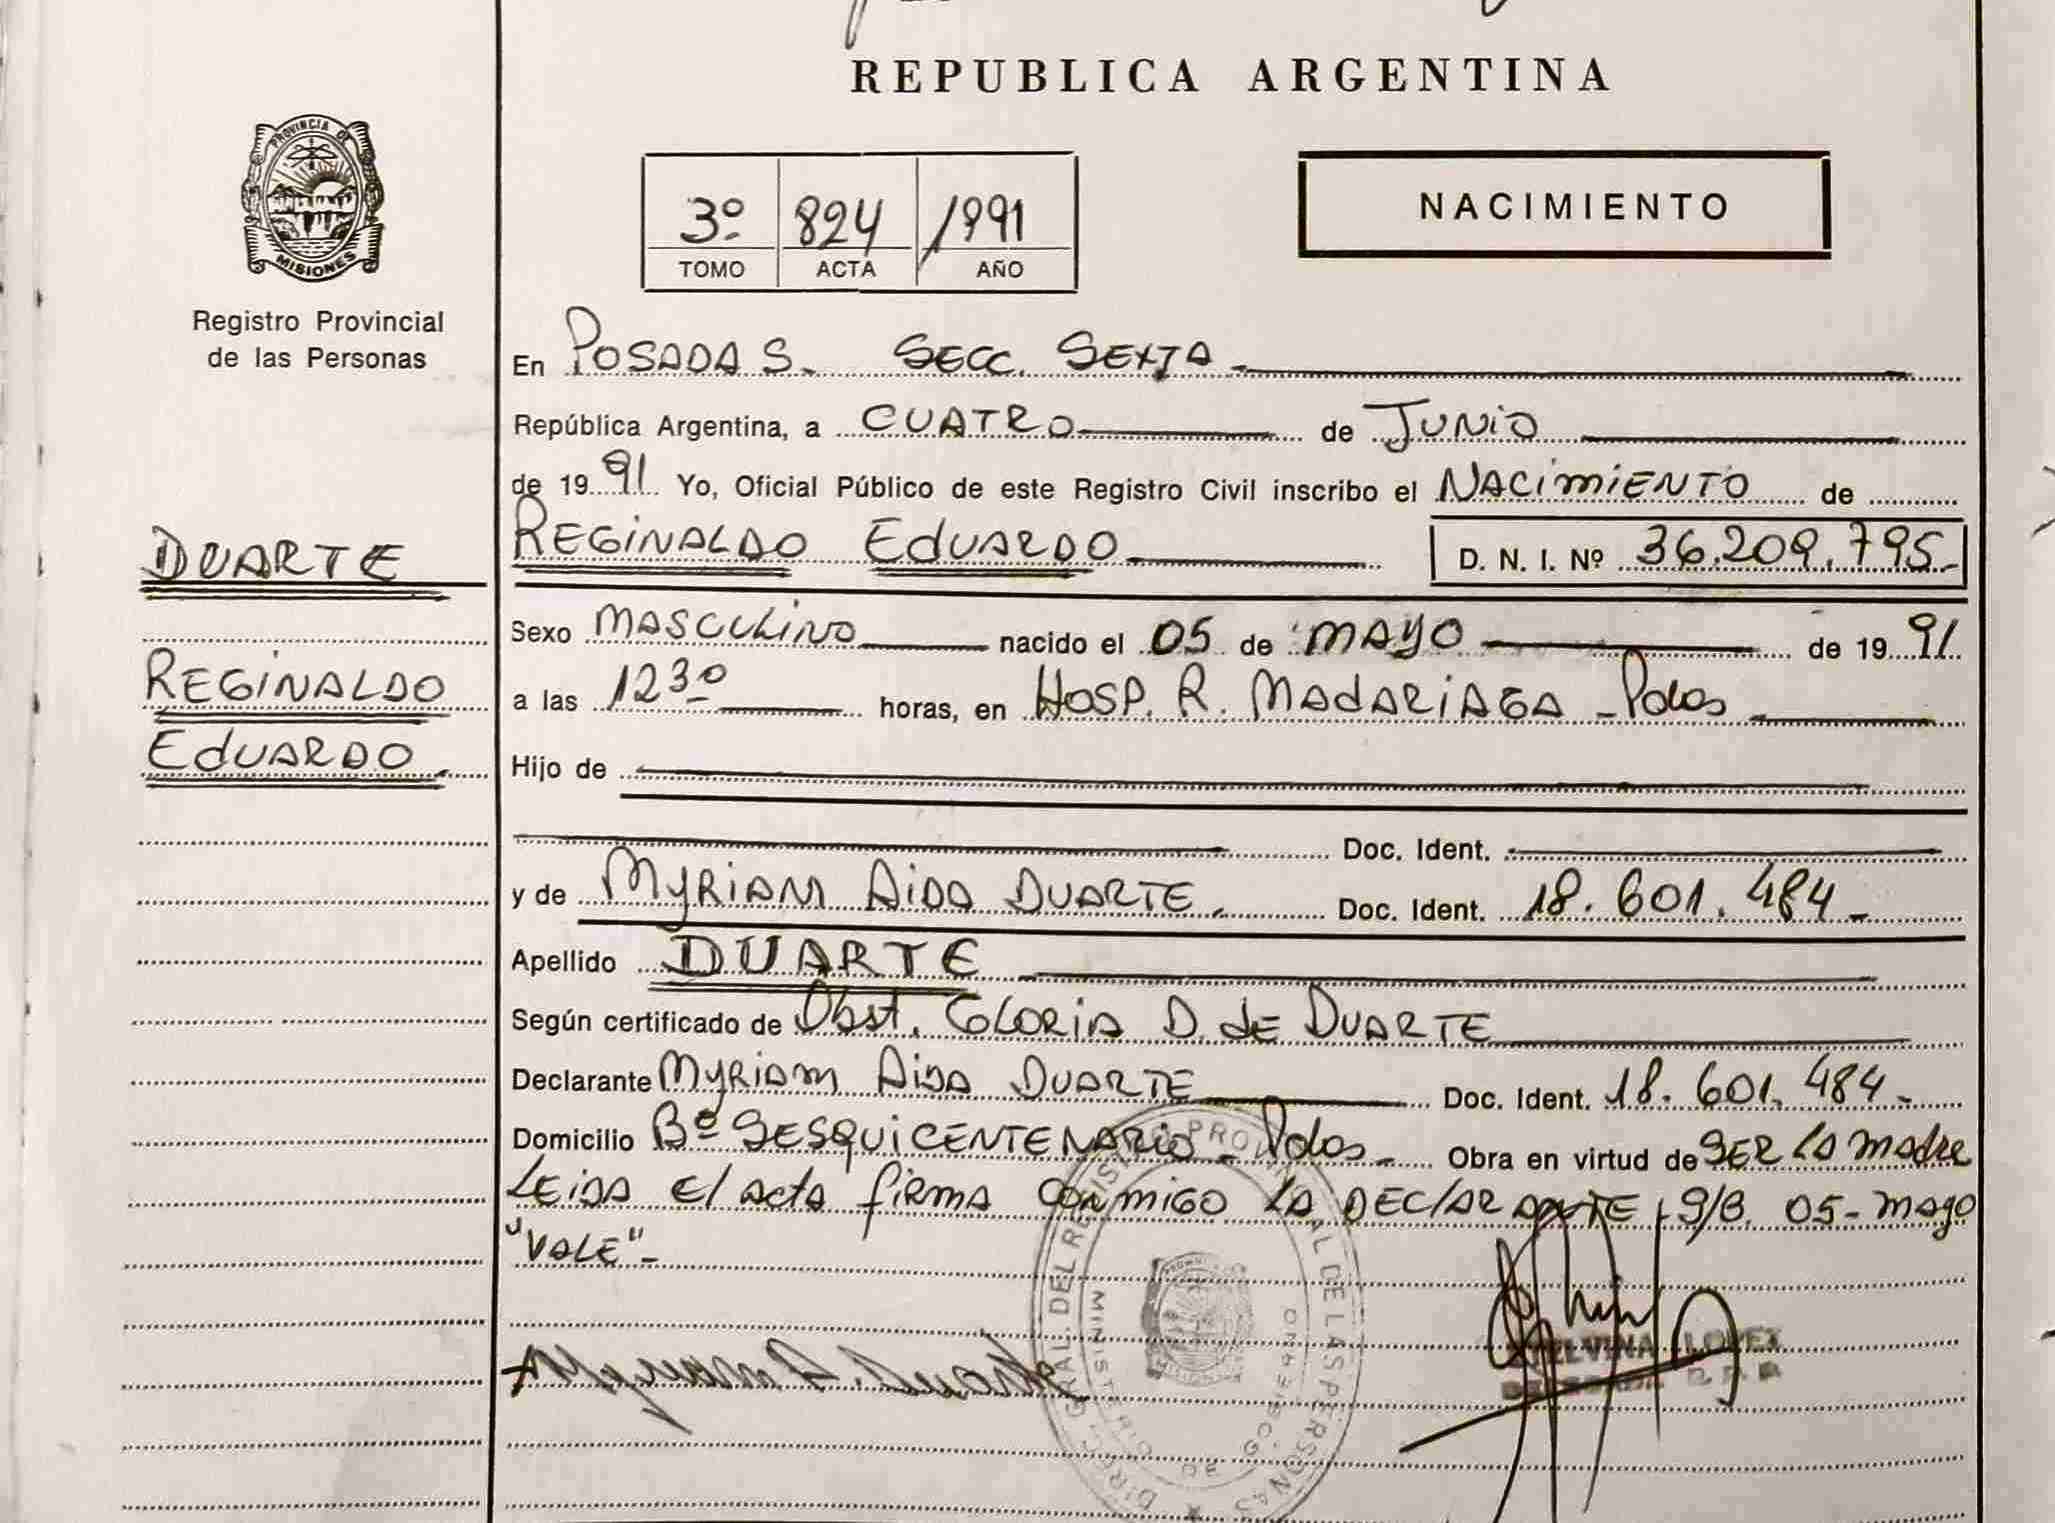 REPUBLICA ARGENTINA
PROVINCIA DE
MISIONES
Registro Provincial
de las Personas
3º 824 1991
TOMO ACTA AÑO
NACIMIENTO
En POSADAS. SECC. SEXTA
República Argentina, a CUATRO de JUNIO
de 1991 Yo, Oficial Público de este Registro Civil inscribo el NACIMIENTO de
REGINALDO EDUARDO D. N. I. Nº 36.209.795
DUARTE
REGINALDO
EDUARDO
Sexo MASCULINO nacido el 05 de MAYO de 1991
a las 12 30 horas, en HOSP. R. MADARIAGA - Pdas
Hijo de
Doc. Ident.
y de MYRIAM AIDA DUARTE. Doc. Ident. 18.601.484
Apellido DUARTE
Según certificado de Obst. GLORIA D. de DUARTE
Declarante MYRIAM AIDA DUARTE Doc. Ident. 18.601.484
Domicilio Bº SESQUICENTENARIO - Pdas. Obra en virtud de SER LA MADRE
LEIDA El acta firma CONMIGO LA DECLARANTE S/B 05-Mayo
"VALE"
DIREC. GRAL. DEL REGISTRO PROVINCIAL DE LAS PERSONAS
MINISTERIO DE GOBIERNO
LOPEZ